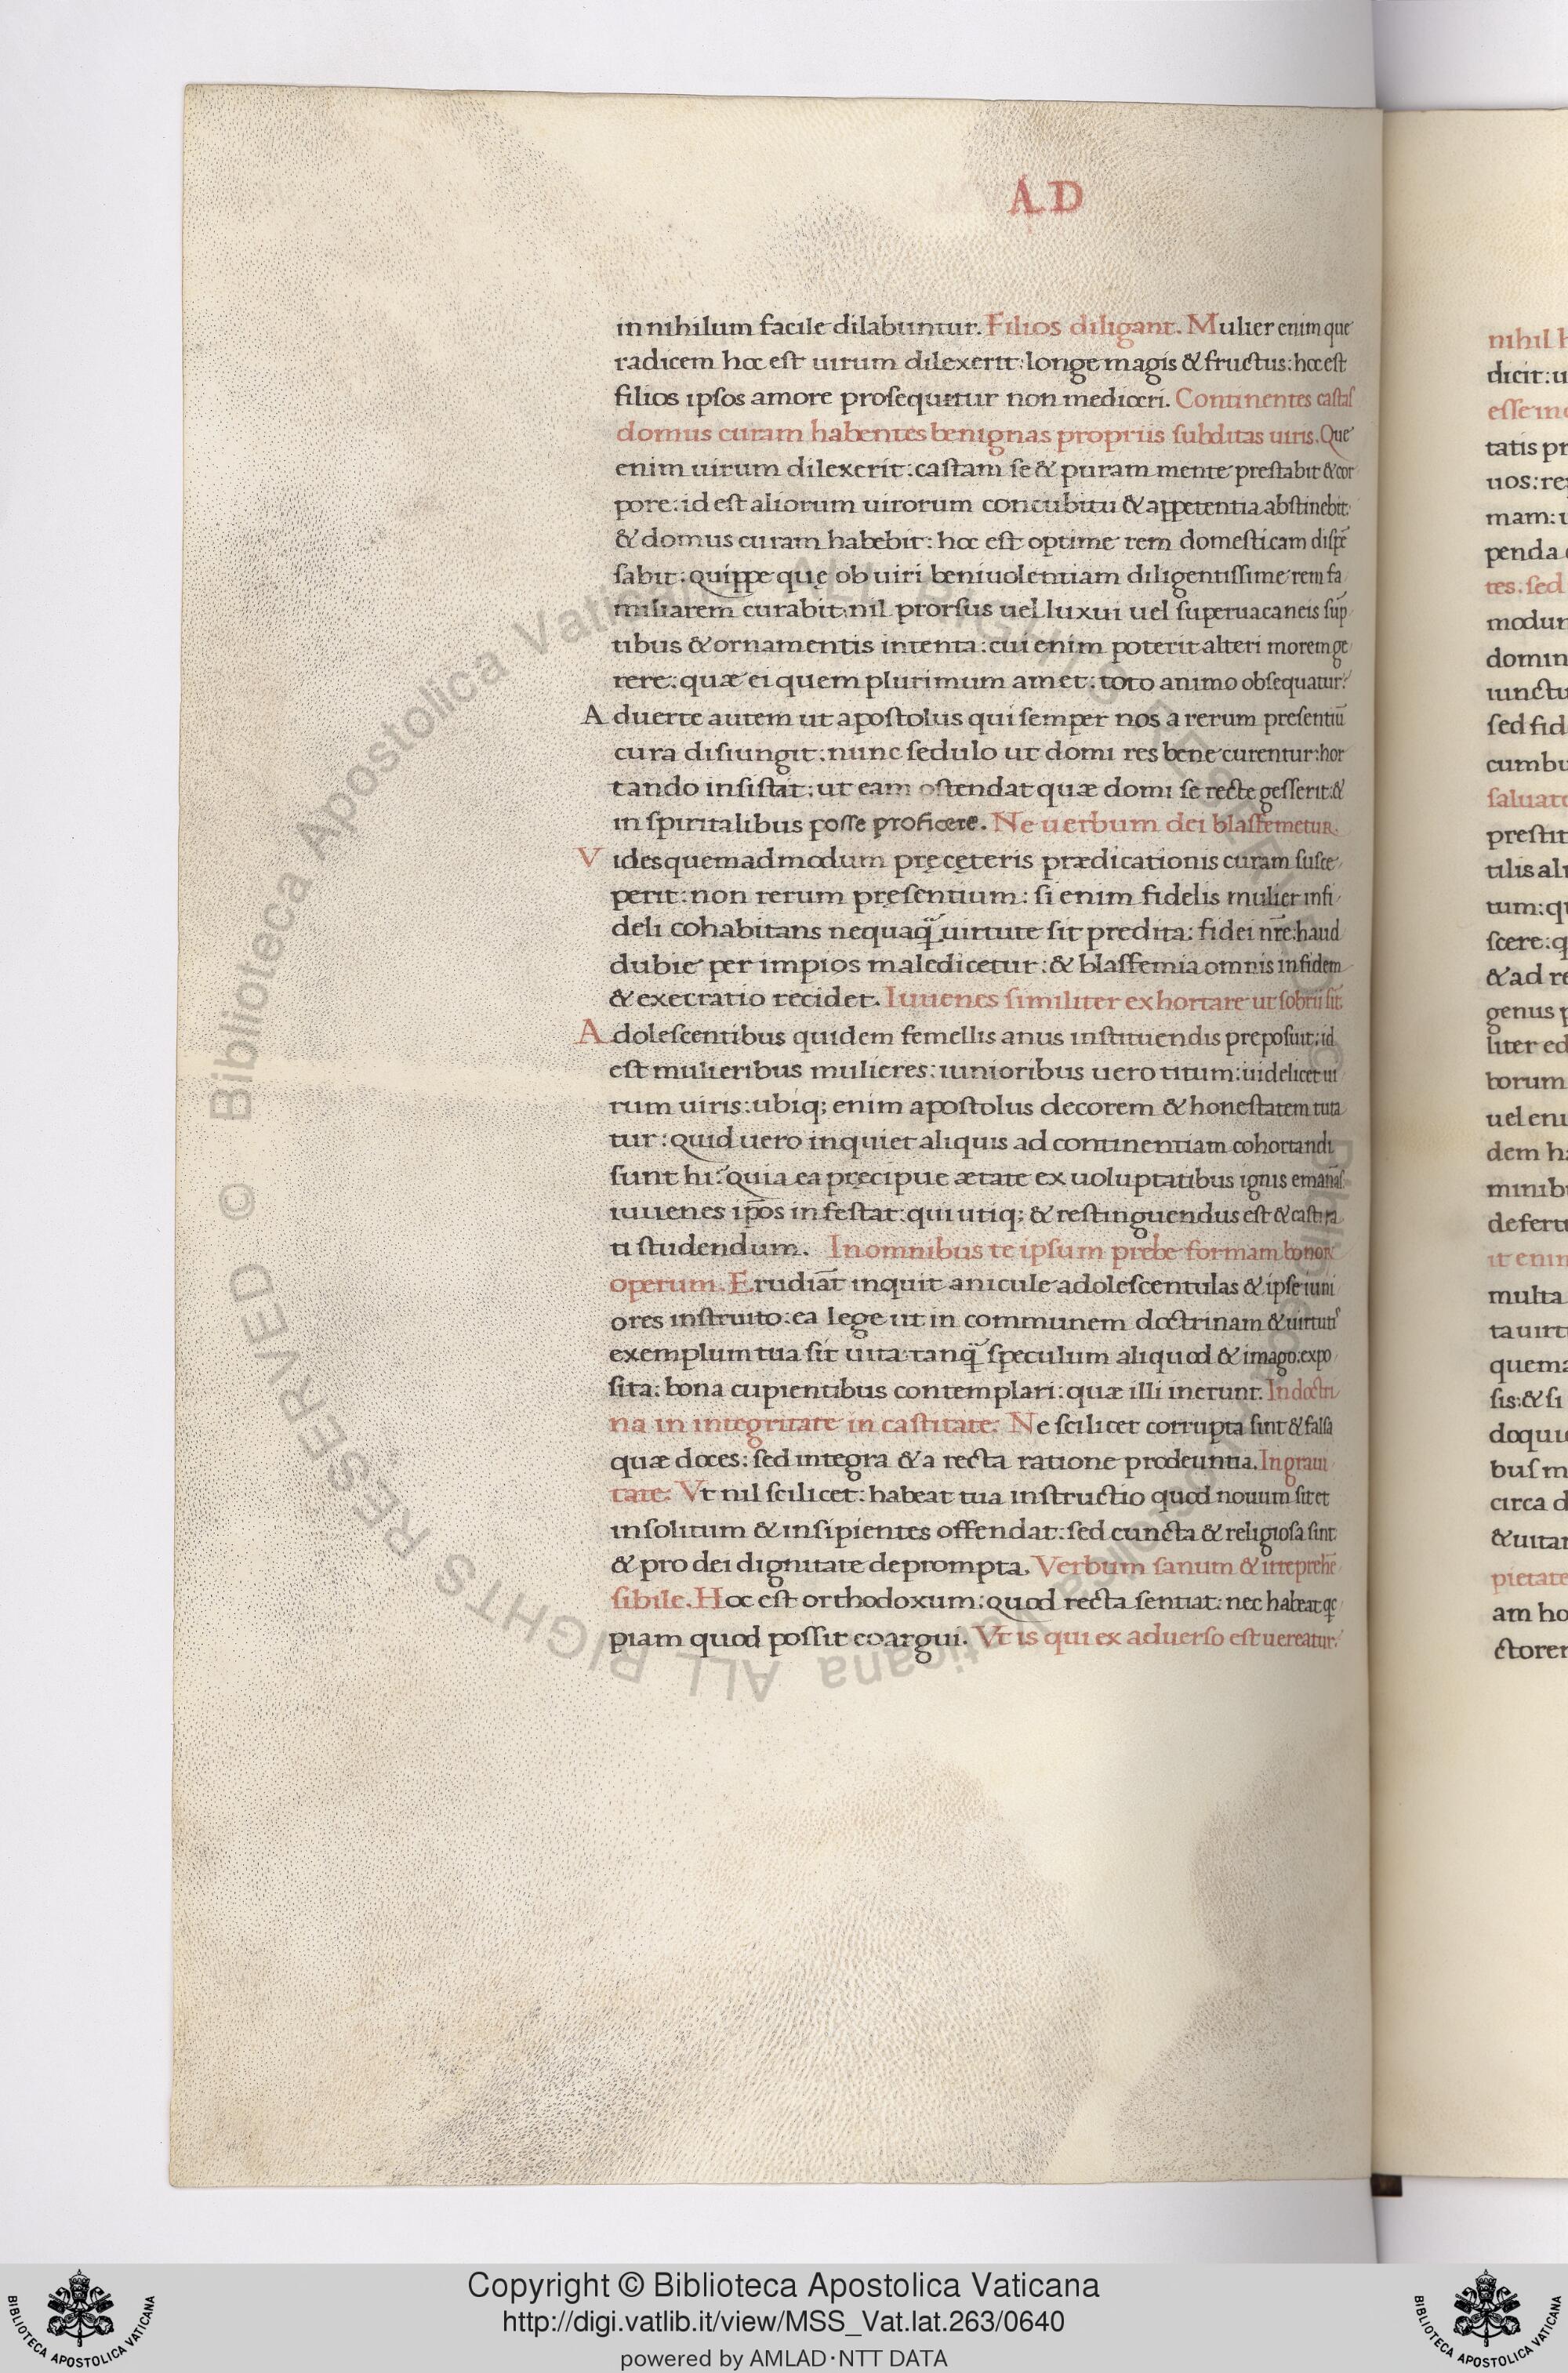 A D
in nihilum facile dilabuntur. Filios diligant. Mulier enim que
radicem hoc est uirum dilexerit: longe magis & fructus: hoc est
filios ipsos amore prosequitur non mediocri. Continentes castas
domus curam habentes benignas propriis subditas uiris. Que
enim uirum dilexerit: castam se & puram mente prestabit & cor
pore: id est aliorum uirorum concubitu & appetentia abstinebit
& domus curam habebit: hoc est optime rem domesticam dispē
sabit: quippe quę ob uiri beniuolentiam diligentissime rem fa
miliarem curabit: nil prorsus uel luxui uel superuacaneis sūp
tibus & ornamentis intenta: cui enim poterit alteri morem ge
rere: quæ ei quem plurimum amet: toto animo obsequatur?
Aduerte autem ut apostolus qui semper nos a rerum presentiū
cura disiungit: nunc sedulo ut domi res bene curentur: hor
tando insistat: ut eam ostendat quæ domi se recte gesserit: &
in spiritalibus posse proficere. Ne uerbum dei blasfemetur.
Vides quemadmodum prę cęteris prædicationis curam susce
perit: non rerum pręsentium: si enim fidelis mulier infi
deli cohabitans nequaq̃ uirtute sit predita: fidei nr̄e: haud
dubie per impios maledicetur: & blasfemia omnis in fidem
& execratio recidet. Iuuenes similiter exhortare ut sobrii sīt
Adolescentibus quidem femellis anus instituendis preposuit: id
est mulieribus mulieres: iunioribus uero titum: uidelicet ui
rum uiris: ubiq; enim apostolus decorem & honestatem tuta
tur: quid uero inquiet aliquis ad continentiam cohortandi
sunt hi? quia ea pręcipue ætate ex uoluptatibus ignis emanās
iuuenes ip̄os infestat: qui utiq; & restinguendus est & castita
ti studendum. In omnibus te ipsum prebe formam bonoꝝ
operum. Erudiāt inquit anicule adolescentulas & ipse iuni
ores instruito: ea lege ut in communem doctrinam & uirtutis
exemplum tua sit uita: tanq̃ speculum aliquod & imago: expo
sita: bona cupientibus contemplari: quæ illi inerunt. In doctri
na in integritate in castitate. Ne scilicet corrupta sint & falsa
quæ doces: sed integra & a recta ratione prodeuntia. In graui
tate. Vt nil scilicet: habeat tua instructio quod nouum sit et
insolitum & insipientes offendat: sed cuncta & religiosa sint
& pro dei dignitate deprompta. Verbum sanum & irreprehē
sibile. Hoc est orthodoxum: quod recta sentiat: nec habeat qc
piam quod possit coargui. Vt is qui ex aduerso est uereatur.
nihil h
dicit: u
esse
tatis pr
uos: re
mam: u
penda
tes. sed
modum
domin
iunctu
sed fid
cumbu
saluato
prestit
tilis ali
tum: qu
scere: q
& ad re
genus p
liter ed
borum
uel eni
dem ha
minibu
defertu
it enim
multa
ta uirtu
quema
sis: & si
doqui
bus m
circa d
& uitan
pietate
am ho
ctorem
© Biblioteca Apostolica Vaticana ALL RIGHTS RESERVED
Copyright © Biblioteca Apostolica Vaticana
http://digi.vatlib.it/view/MSS_Vat.lat.263/0640
powered by AMLAD·NTT DATA
BIBLIOTECA APOSTOLICA VATICANA
BIBLIOTECA APOSTOLICA VATICANA